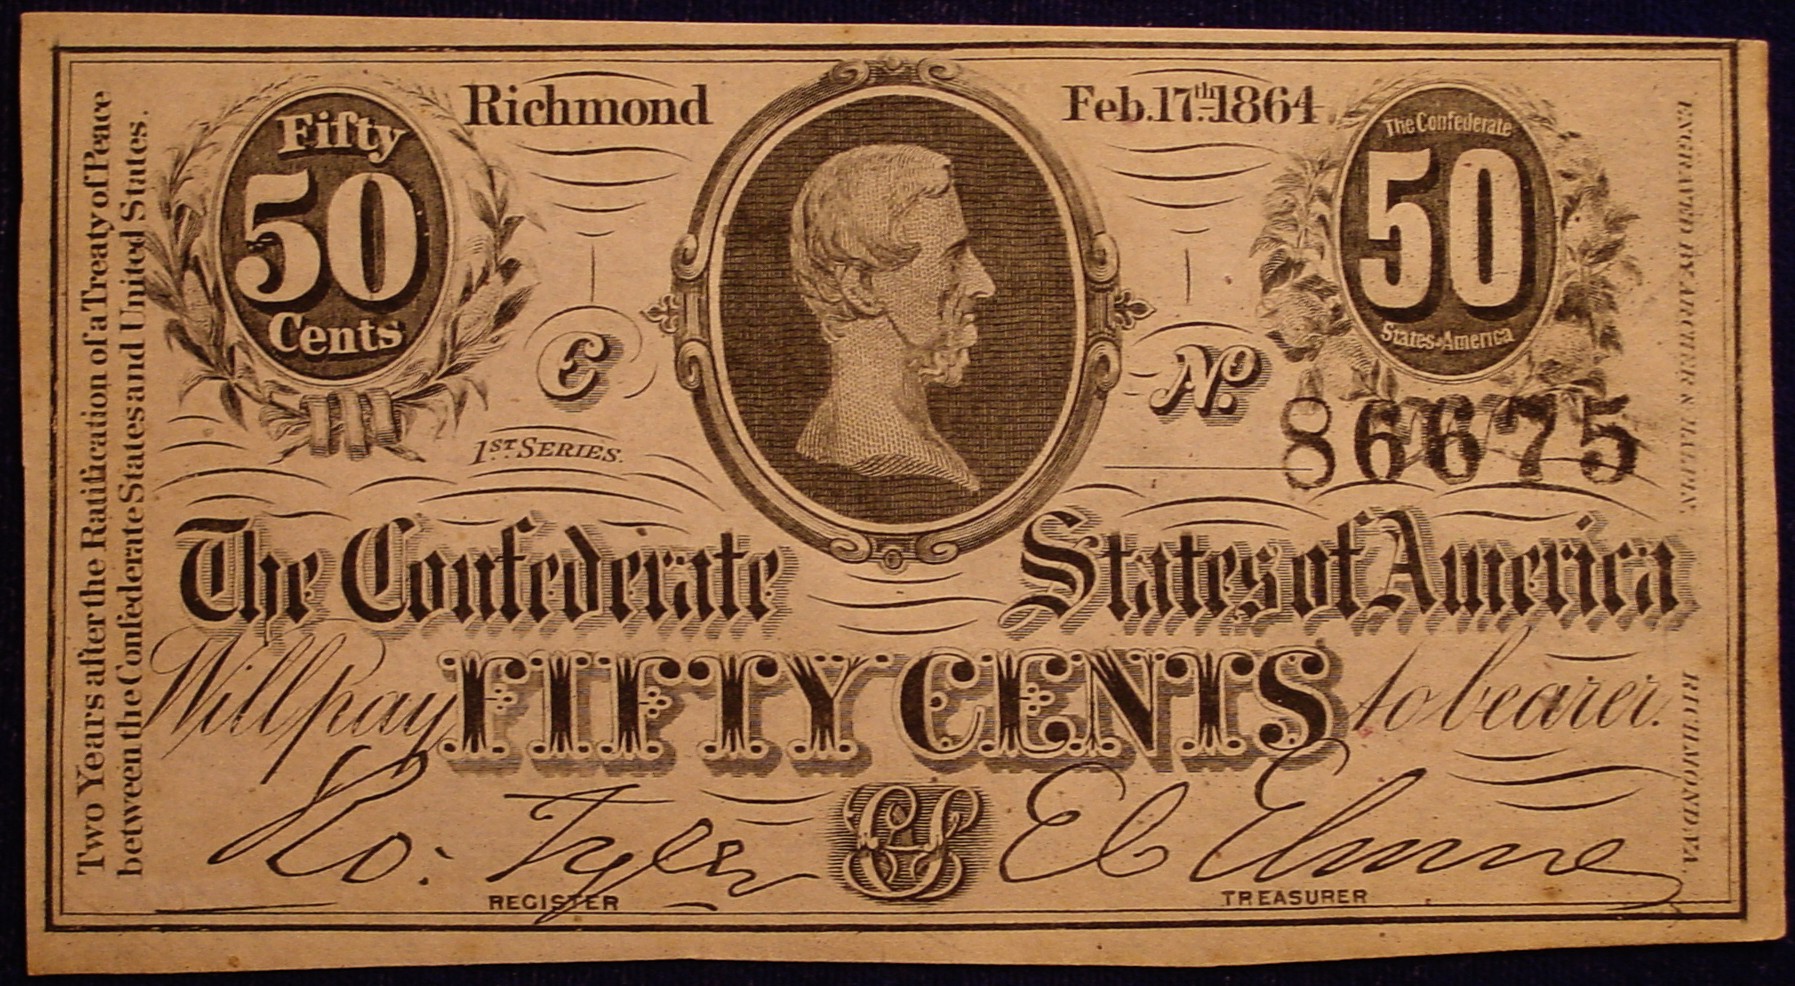 Two Years after the Ratification of a Treaty of Peace
between the Confederate States and United States.
Fifty
50
Cents
Richmond
Feb. 17th 1864
The Confederate
50
States of America
C
No
86675
1ST SERIES.
The Confederate States of America
Will pay FIFTY CENTS to bearer.
Ro: Tyler
REGISTER
CS
E C Elmore
TREASURER
ENGRAVED BY ARCHER & HALPIN
RICHMOND VA.